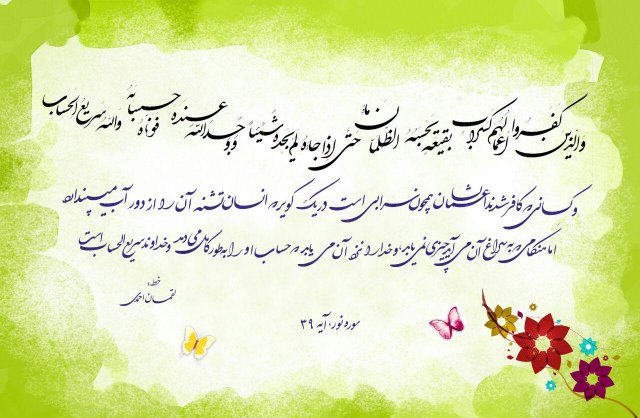 والذین کفروا اعمالهم کسراب بقیعه یحسبه الظمان ماء حتی اذا جاءه لم یجده شیئا و وجد الله عنده فوفاه حسابه والله سریع الحساب
و کسانی که کافر شدند اعمالشان همچون سرابی است در یک کویر که انسان تشنه آن را از دور آب میپندارد
اما هنگامی که به سراغ آن می آید چیزی نمی یابد و خدا را نزد آن می یابد که حساب او را به طور کامل می دهد و خداوند سریع الحساب است
خط:
لقمان احمدی
سوره نور، آیه ۳۹